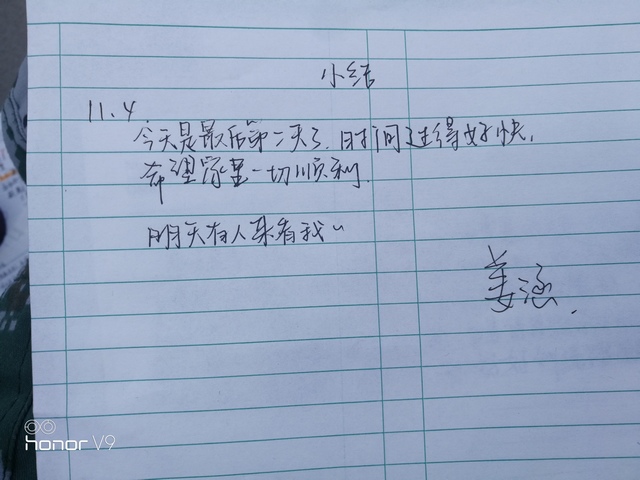 小结
11.4
今天是最后第二天了.时间过得好快,
希望家里一切顺利.
明天有人来看我~
姜涵.
honor V9